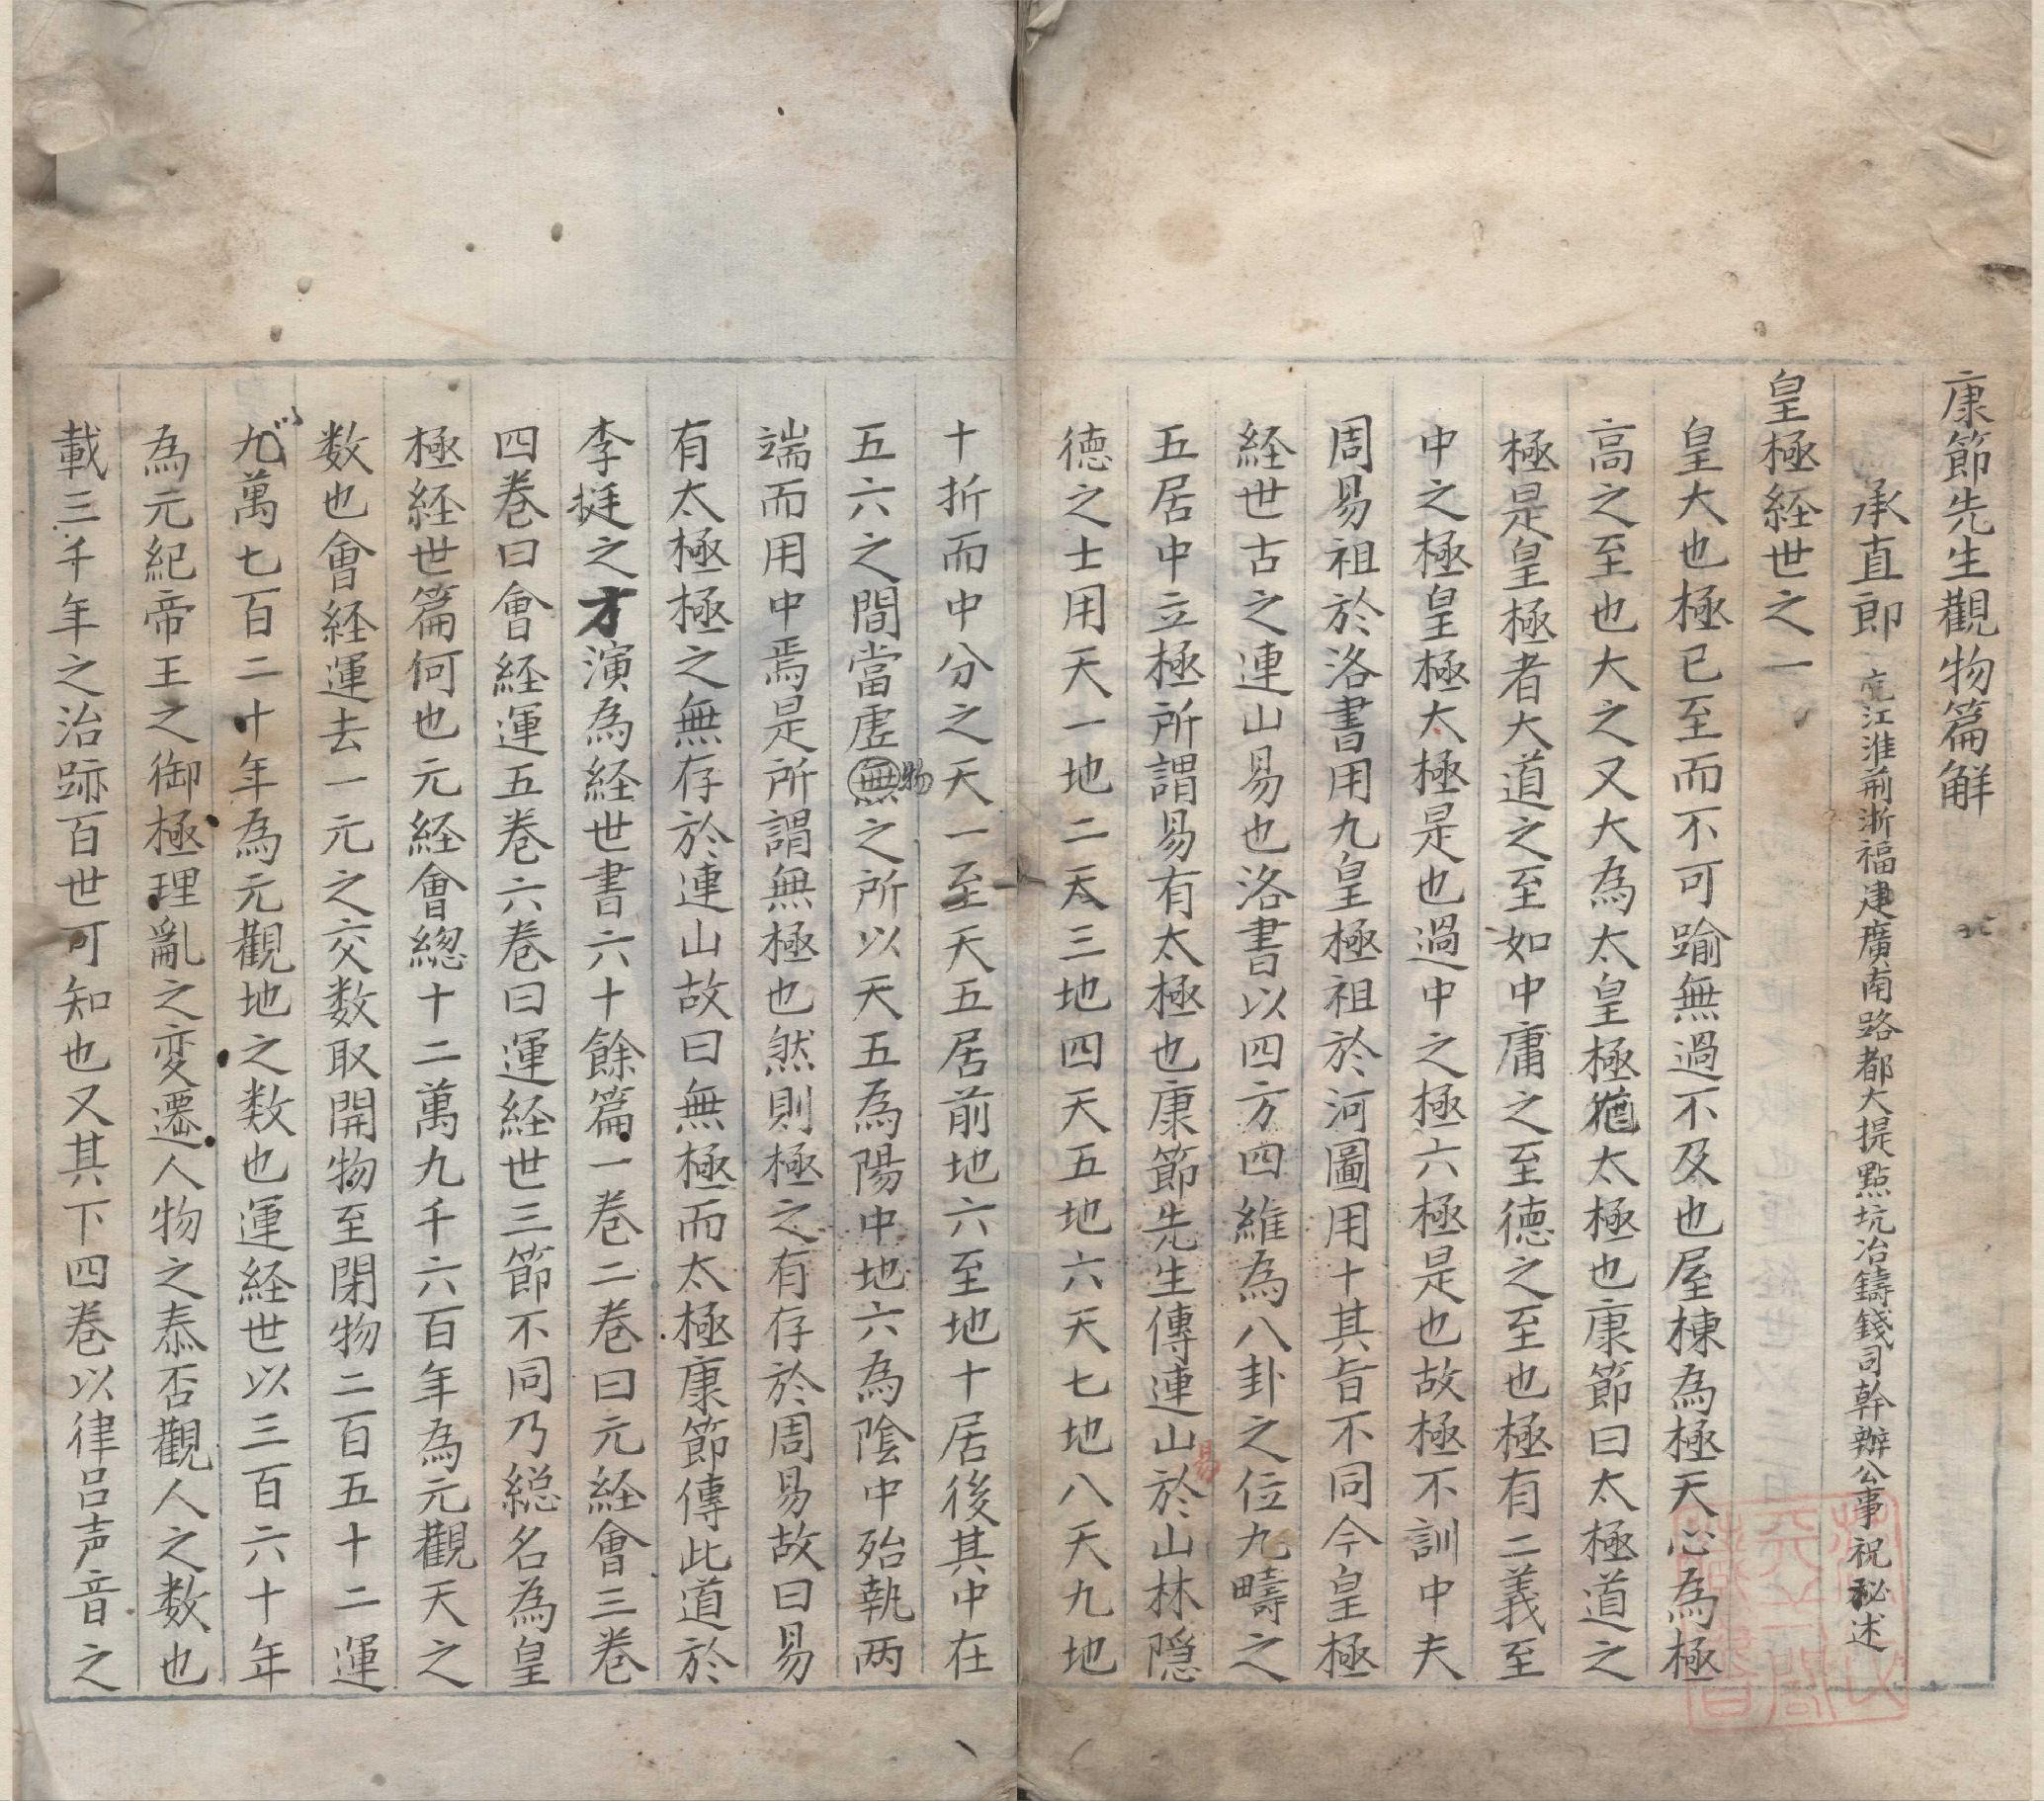 康節先生觀物篇解
承直郎 充江淮荊浙福建廣南路都大提點坑冶鑄錢司幹辦公事祝秘述
皇極経世之一
皇大也極已至而不可踰無過不及也屋棟為極天心為極
高之至也大之又大為太皇極犹太極也康節曰太極道之
極是皇極者大道之至如中庸之至德之至也極有二義至
中之極皇極大極是也過中之極六極是也故極不訓中夫
周易祖於洛書用九皇極祖於河圖用十其旨不同今皇極
経世古之連山易也洛書以四方四維為八卦之位九疇之
五居中立極所謂易有太極也康節先生傳連山易於山林隠
德之士用天一地二天三地四天五地六天七地八天九地
十折而中分之天一至天五居前地六至地十居後其中在
五六之間當虛無物之所以天五為陽中地六為陰中殆執两
端而用中焉是所謂無極也然則極之有存於周易故曰易
有太極極之無存於連山故曰無極而太極康節傳此道於
李挺之才演為経世書六十餘篇一巻二巻曰元経會三巻
四巻曰會経運五巻六巻曰運経世三節不同乃総名為皇
極経世篇何也元経會総十二萬九千六百年為元觀天之
数也會経運去一元之交数取開物至閉物二百五十二運
九萬七百二十年為元觀地之数也運経世以三百六十年
為元紀帝王之御極理亂之変遷人物之泰否觀人之数也
載三千年之治跡百世可知也又其下四巻以律呂声音之